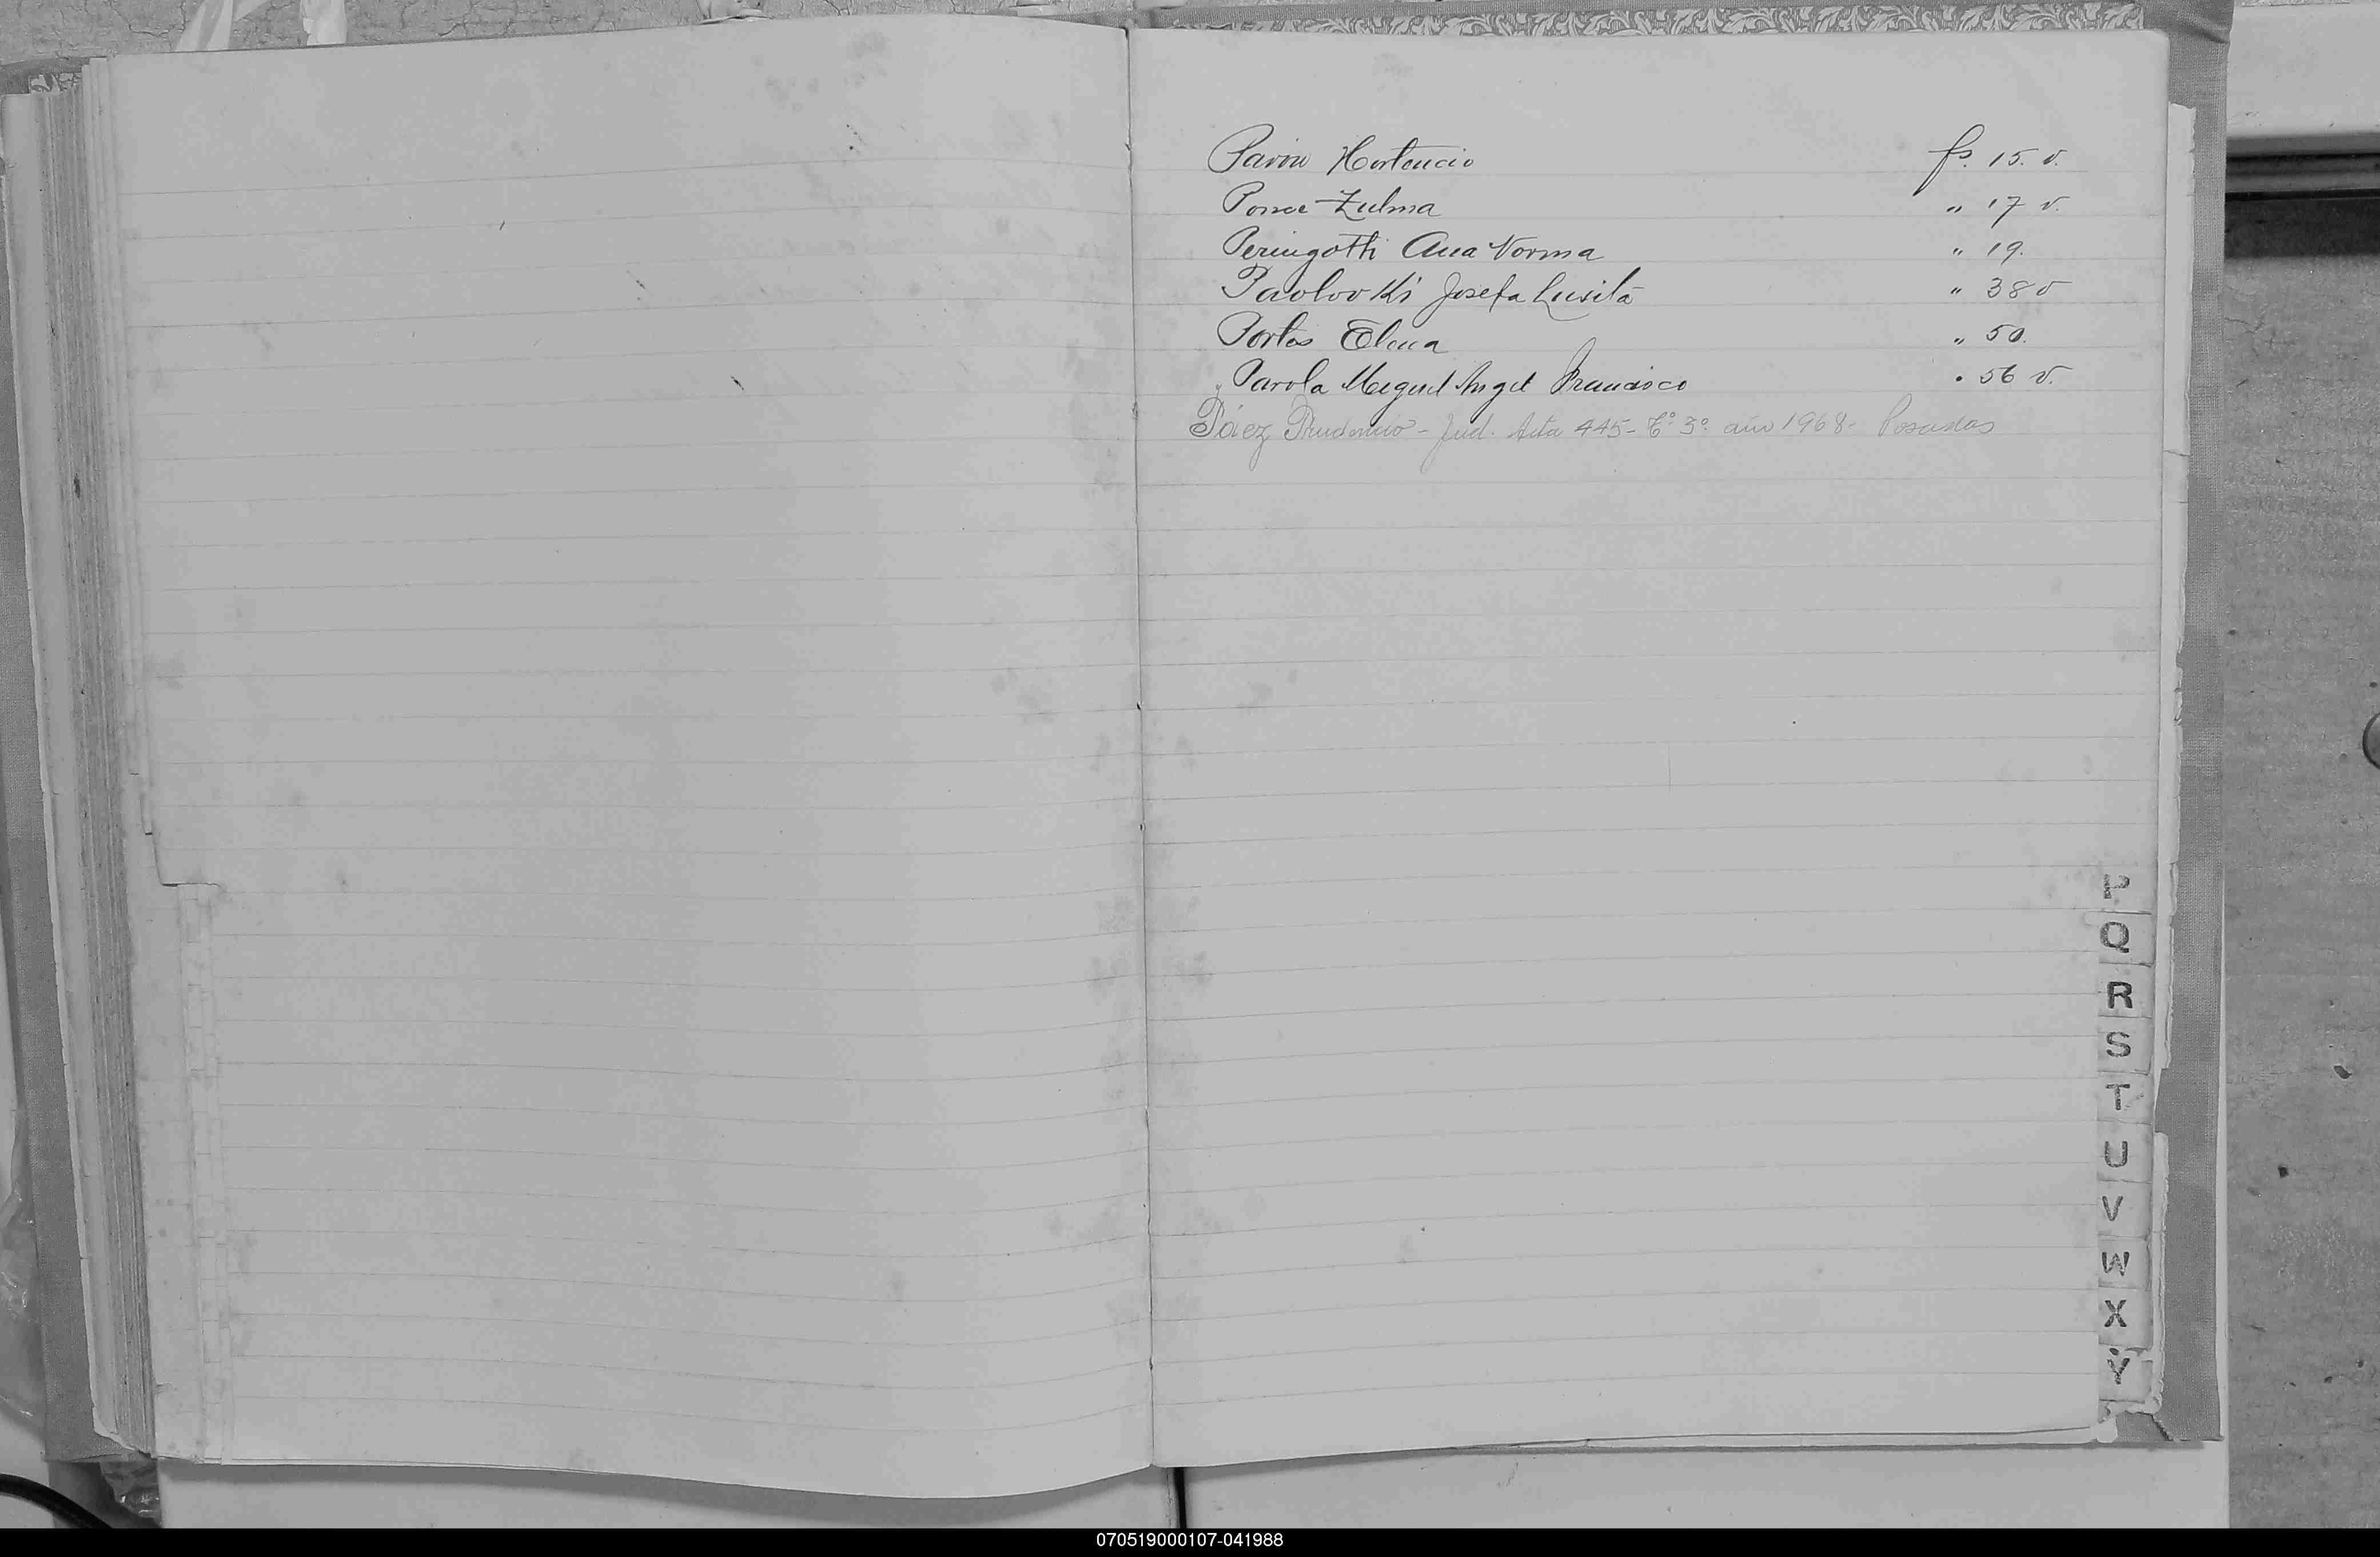 Pavon Hortencio fs. 15. v.
Ponce Zulma " 17 v.
Peringotti Ana Norma " 19.
Paolovki Josefa Lusila " 38 v
Portos Elena " 50.
Parola Miguel Angel Francisco " 56 v.
Páez Prudencio - Jud. Acta 445 - Tº 3º año 1968 - Posadas
P
Q
R
S
T
U
V
W
X
Y
070519000107-041988